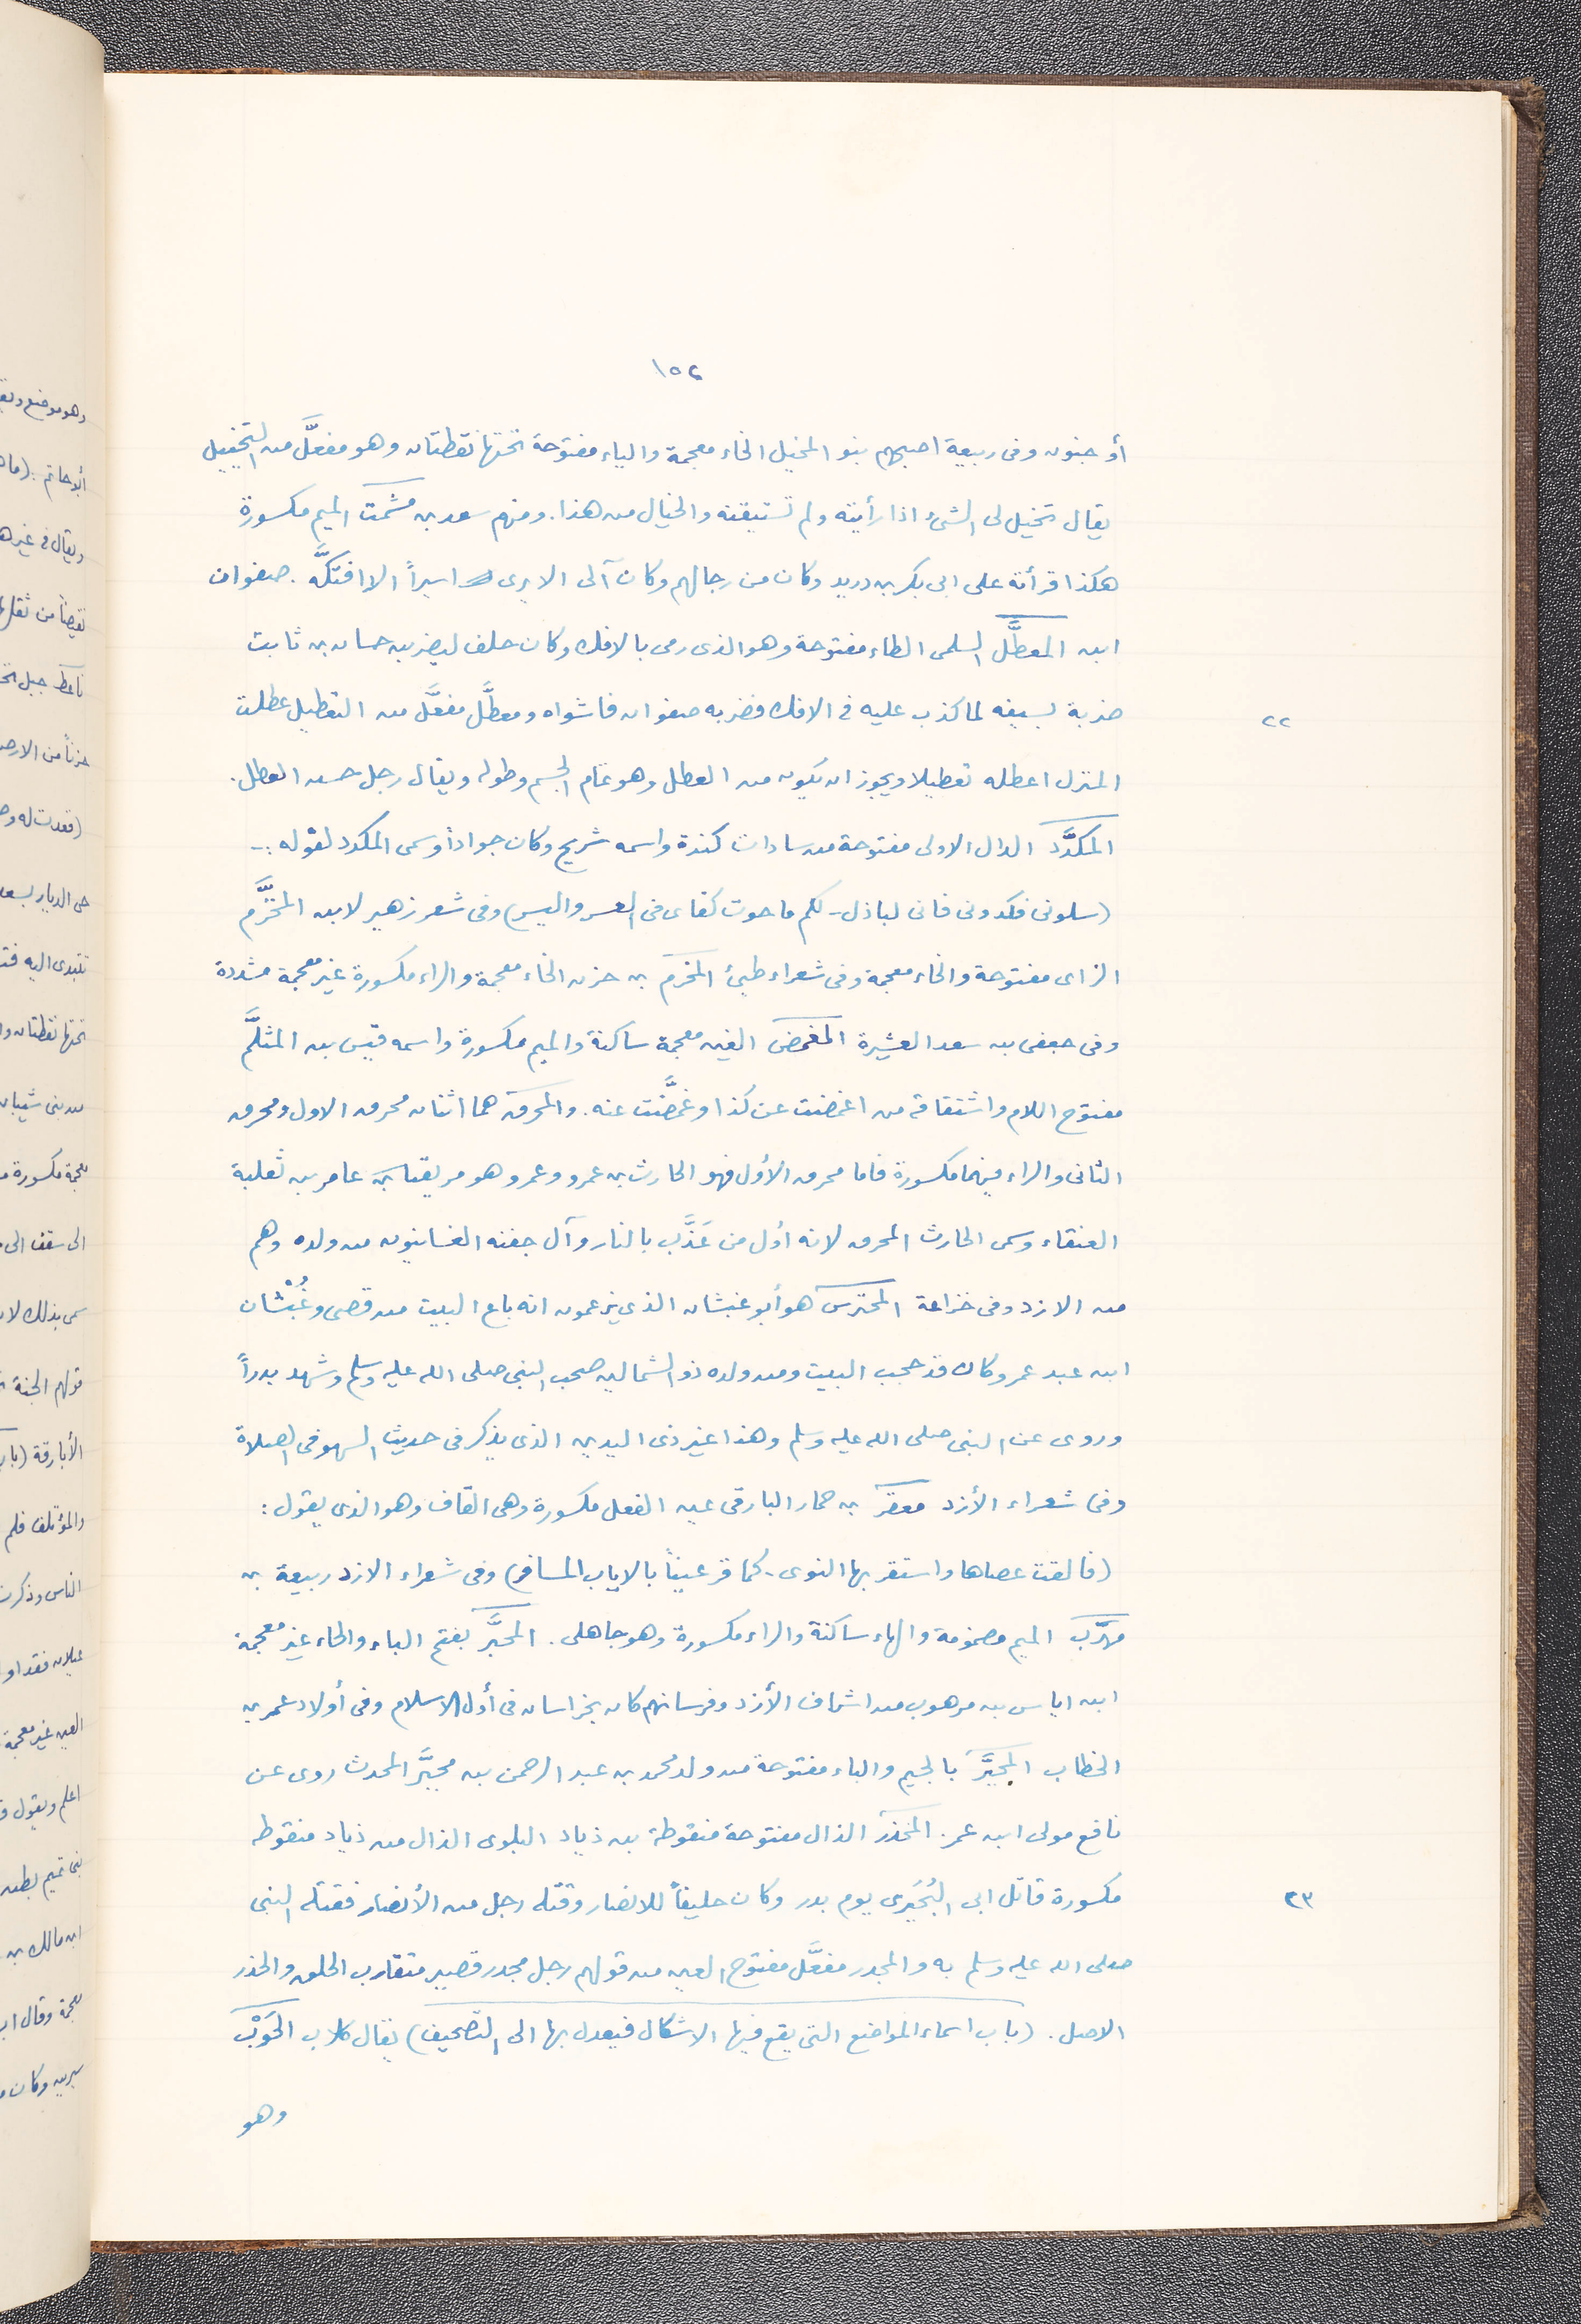 ١٥٢
أو جنون وفى ربيعة اصبهم بنو المخيل الخاء معجمة والياء مفتوحة تحتها نقطتان وهو مفعَّل من التخييل
يقال تخيل لى الشىء اذا رأيته ولم تستيقنه والخيال من هذا. ومنهم سعد بن مشمت الميم مكسورة
هكذا قرأته على ابى بكر بن دريد وكان من رجالهم وكان آلى الا يرى اسيراً الا افتكَّه. صفوان
ابن المعطَّل السلمى الطاء مفتوحة وهو الذى رمى بالافك وكان حلف ليضربن حسان بن ثابت
ضربة بسيفه لما كذب عليه فى الافك فضربه صفوان فاشواه ومعطَّل مفعَّل من التعطيل عطلت
٢٢
المنزل اعطله تعطيلا ويجوز ان يكون من العطل وهو تمام الجسم وطوله ويقال رجل حسن العطل.
المكدَّد الدال الاولى مفتوحة من سادات كندة واسمه شريح وكان جواداً وسمى المكدد لقوله :-
(سلونى فكدونى فانى لباذل - لكم ما حوت كفاى فى العسر واليسر) وفى شعر زهير لابن المخزَّم
الزاى مفتوحة والخاء معجمة وفى شعراء طيئ المخرم بن حزن الخاء معجمة والراء مكسورة غير معجمة مشددة
وفى جعفى بن سعد العشيرة المغمض الغين معجمة ساكنة والميم مكسورة واسمه قيس بن المثلَّم
مفتوح اللام واشتقاقه من اغمضت عن كذا وغمَّضت عنه. والمحرق هما اثنان محرق الاول ومحرق
الثانى والراء فيهما مكسورة فاما محرق الأول فهو الحارث بن عمرو وعمرو هو مزيقيا بن عامر بن ثعلبة
العنقاء وسمى الحارث المحرق لانه أول من عَذَّب بالنار وآل جفنه الغسانيون من ولده وهم
من الازد وفى خزاعة المحترس هو أبو غبشان الذى يزعمون انه باع البيت من قصى وغُبْشان
ابن عبد عمرو كان قد حجب البيت ومن ولده ذو الشمالين صحب النبى صلى الله عليه وسلم وشهد بدراً
وروى عن النبى صلى الله عليه وسلم وهذا غير ذى اليدين الذى يذكر فى حديث السهو فى الصلاة
وفى شعراء الأزد معقر بن حمار البارقى عين الفعل مكسورة وهى القاف وهو الذى يقول :
(فالقت عصاها واستقر بها النوى - كما قر عيناً بالاياب المسافر) وفى شعراء الازد ربيعة بن
مهرَّب الميم مضمومة والهاء ساكنة والراء مكسورة وهو جاهلى. المحبَّر بفتح الباء والحاء غير معجمة
ابن اياس بن مرهوب من اشراف الأزد وفرسانهم كان بخراسان فى أول الاسلام وفى أولاد عمر بن
الخطاب المجبَّر بالجيم والباء مفتوحة من ولد محمد بن عبد الرحمن بن مجبَّر المحدث روى عن
نافع مولى ابن عمر. المجذر الذال مفتوحة منقوطة بن ذياد البلوى الذال من ذياد منقوطه
مكسورة قاتل ابى البُخَيرى يوم بدر وكان حليفاً للانصار وقتله رجل من الأنصار فقتله النبى
٢٣
صلى الله عليه وسلم به والمجدر مفعَّل مفتوح العين من قولهم رجل مجدر قصير متقارب الخلق والجذر
الاصل. (باب اسماء المواضع التى يقع فيها الاشكال فيعدل بها الى التصحيف) يقال كلاب الحَوْبَ
وهو